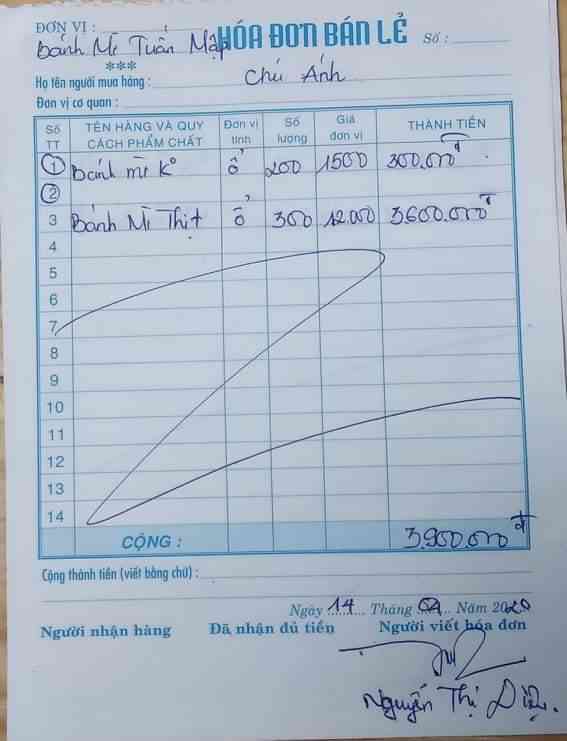 ĐƠN VỊ :
Bánh Mì Tuấn Mập
HÓA ĐƠN BÁN LẺ Số :
***
Họ tên người mua hàng : Chú Ánh
Đơn vị cơ quan :
Số TT TÊN HÀNG VÀ QUY CÁCH PHẨM CHẤT Đơn vị tính Số lượng Giá đơn vị THÀNH TIỀN
1 Bánh mì Ko ổ 200 1500 300.000đ
2
3 Bánh Mì Thịt ổ 300 12.000 3600.000đ
4
5
6
7
8
9
10
11
12
13
14
CỘNG : 3.900.000đ
Cộng thành tiền (viết bằng chữ) :
Ngày 14 Tháng Năm 2020
Người nhận hàng Đã nhận đủ tiền Người viết hóa đơn
Nguyễn Thị